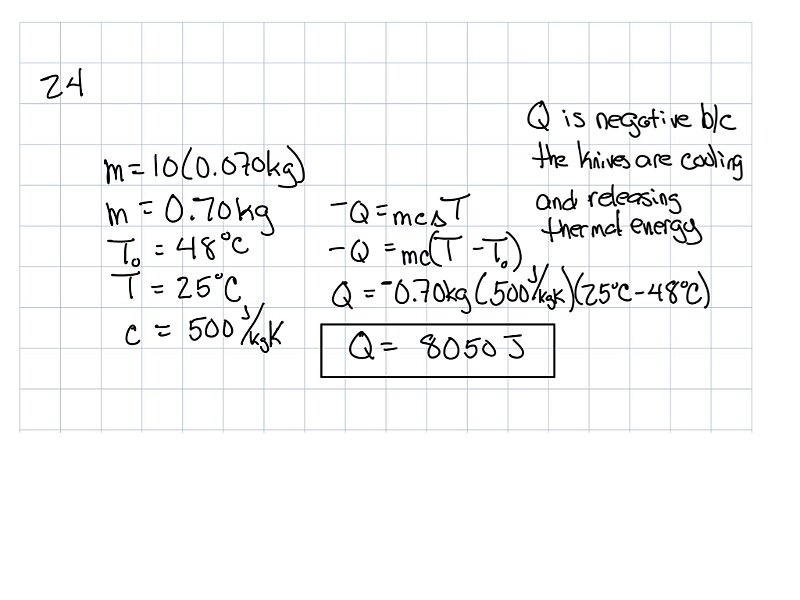 24
Q is negative b/c
the knives are cooling
and releasing
thermal energy
m = 10(0.070kg)
m = 0.70kg
T₀ = 48°C
T = 25°C
c = 500 J/kgK
-Q = mcΔT
-Q = mc(T - T₀)
Q = -0.70kg(500 J/kgK)(25°C - 48°C)
Q = 8050 J